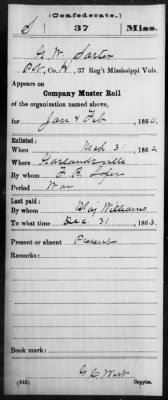 (Confederate.)
S 37 Miss.
G. W. Sarter
Pvt, Co. H, 37 Reg't Mississippi Vols.
Appears on
Company Muster Roll
of the organization named above,
for Jan & Feb, 1864.
Enlisted:
When Mch 31, 1862
Where Garlandsville
By whom
Period War
Last paid:
By whom Maj Williams
To what time Dec 31, 1863.
Present or absent Present
Remarks:
Book mark:
G C West
(642) Copyist.